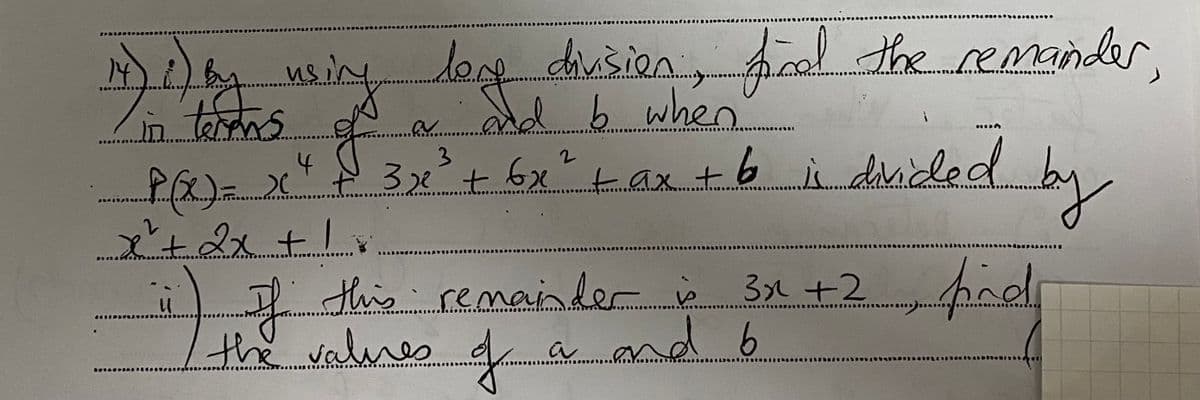 14) i) by using long division, find the remainder,
in terms of a and b when
P(x) = x⁴ + 3x³ + 6x² + ax + b is divided by
x² + 2x + 1.
ii) If this remainder is 3x + 2, find
the values of a and b